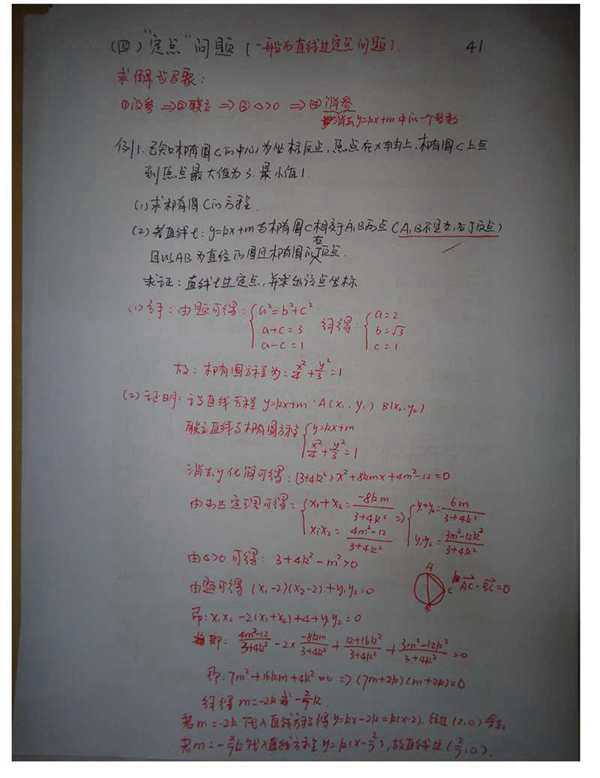 (四)“定点”问题(一般为直线过定点问题). 41
求解步骤:
①设参 ⇒ ②联立 ⇒ ③ △>0 ⇒ ④ 消参
消去y=kx+m中的一个参数
例1. 已知椭圆C的中心为坐标原点,焦点在x轴上,椭圆C上点
到焦点最大值为3.最小值1.
(1)求椭圆C的方程.
(2)若直线l:y=kx+m与椭圆C相交于A,B两点(A,B不是左,右顶点)
且以AB为直径的圆过椭圆的右顶点.
求证:直线l过定点,并求出该点坐标
(1)解:由题可得:{a²=b²+c² a+c=3 a-c=1 解得{a=2 b=√3 c=1
故:椭圆方程为:x²/4+y²/3=1
(2)证明:设直线方程 y=kx+m A(x₁,y₁) B(x₂,y₂)
联立直线与椭圆方程{y=kx+m x²/4+y²/3=1
消去y化简可得:(3+4k²)x²+8kmx+4m²-12=0
由韦达定理可得:{x₁+x₂=-8km/3+4k² x₁x₂=4m²-12/3+4k² ⇒ {y₁+y₂=6m/3+4k² y₁y₂=3m²-12k²/3+4k²
由△>0可得:3+4k²-m²>0
由题可得 (x₁-2)(x₂-2)+y₁y₂=0 A C B AC·BC=0
即:x₁x₂-2(x₁+x₂)+4+y₁y₂=0
即:4m²-12/3+4k² -2×-8km/3+4k² +12+16k²/3+4k² +3m²-12k²/3+4k² =0
即:7m²+16km+4k²=0 ⇒ (7m+2k)(m+2k)=0
解得m=-2k或-2/7k
若m=-2k代入直线方程得y=kx-2k=k(x-2).过点(2,0)
若m=-2/7k代入直线方程y=k(x-2/7),故直线过(2/7,0).